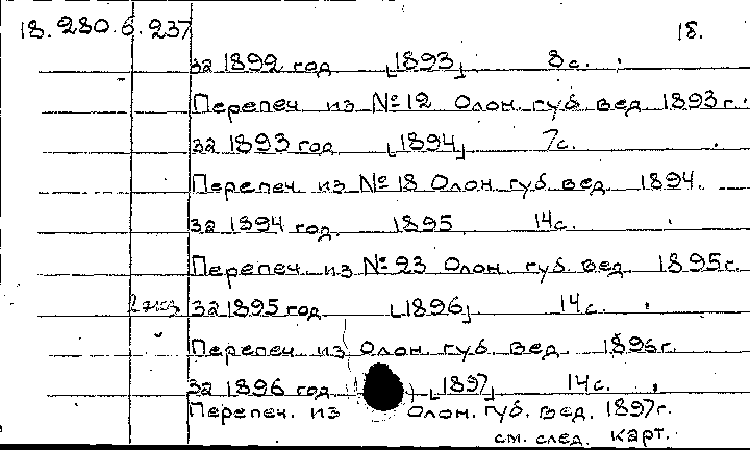 18.280.6.237 18.
за 1892 год [1893] 8с.
Перепеч. из №12 Олон. губ. вед. 1893г.
за 1893 год [1894] 7с.
Перепеч. из №18 Олон. губ. вед. 1894.
за 1894 год. 1895 14с.
Перепеч. из №23 Олон. губ. вед. 1895г.
2 экз за 1895 год [1896] 14с.
Перепеч. из Олон. губ. вед. 1896г.
за 1896 год [1897] 14с.
Перепеч. из Олон. губ. вед. 1897г.
см. след. карт.